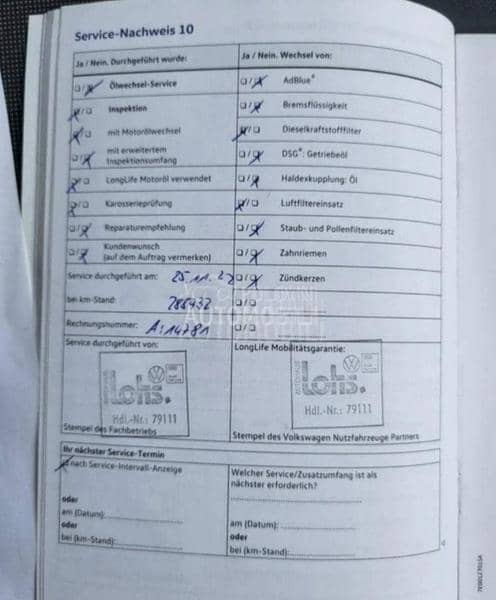 Service-Nachweis 10
Ja / Nein. Durchgeführt wurde:
Ja / Nein. Wechsel von:
Ölwechsel-Service
AdBlue®
Inspektion
Bremsflüssigkeit
mit Motorölwechsel
Dieselkraftstofffilter
mit erweitertem
Inspektionsumfang
DSG®: Getriebeöl
LongLife Motoröl verwendet
Haldexkupplung: Öl
Karosserieprüfung
Luftfiltereinsatz
Reparaturempfehlung
Staub- und Pollenfiltereinsatz
Kundenwunsch
(auf dem Auftrag vermerken)
Zahnriemen
Service durchgeführt am: 25.11.22
Zündkerzen
bei km-Stand:
Rechnungsnummer: A:14781
Service durchgeführt von:
LongLife Mobilitätsgarantie:
AUTOHAUS
Lotis.
Hdl.-Nr.: 79111
AUTOHAUS
Lotis.
Hdl.-Nr.: 79111
Stempel des Fachbetriebs
Stempel des Volkswagen Nutzfahrzeuge Partners
Ihr nächster Service-Termin
nach Service-Intervall-Anzeige
Welcher Service/Zusatzumfang ist als
nächster erforderlich?
oder
am (Datum):
oder
bei (km-Stand):
am (Datum):
oder
bei (km-Stand):